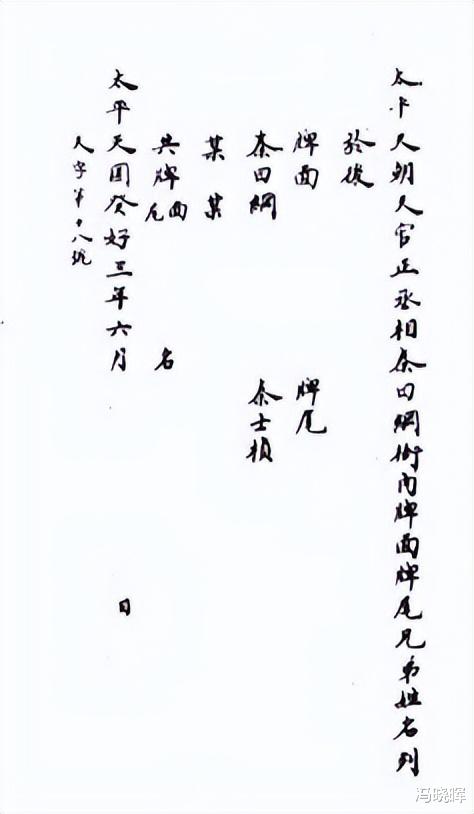 太平天朝天官正丞相秦日綱衙內牌面牌尾兄弟姓名列
於後
牌面 牌尾
秦日綱 秦士楨
某某
共牌面尾 名
太平天囯癸好三年六月 日
天字第十八號
冯晓晖